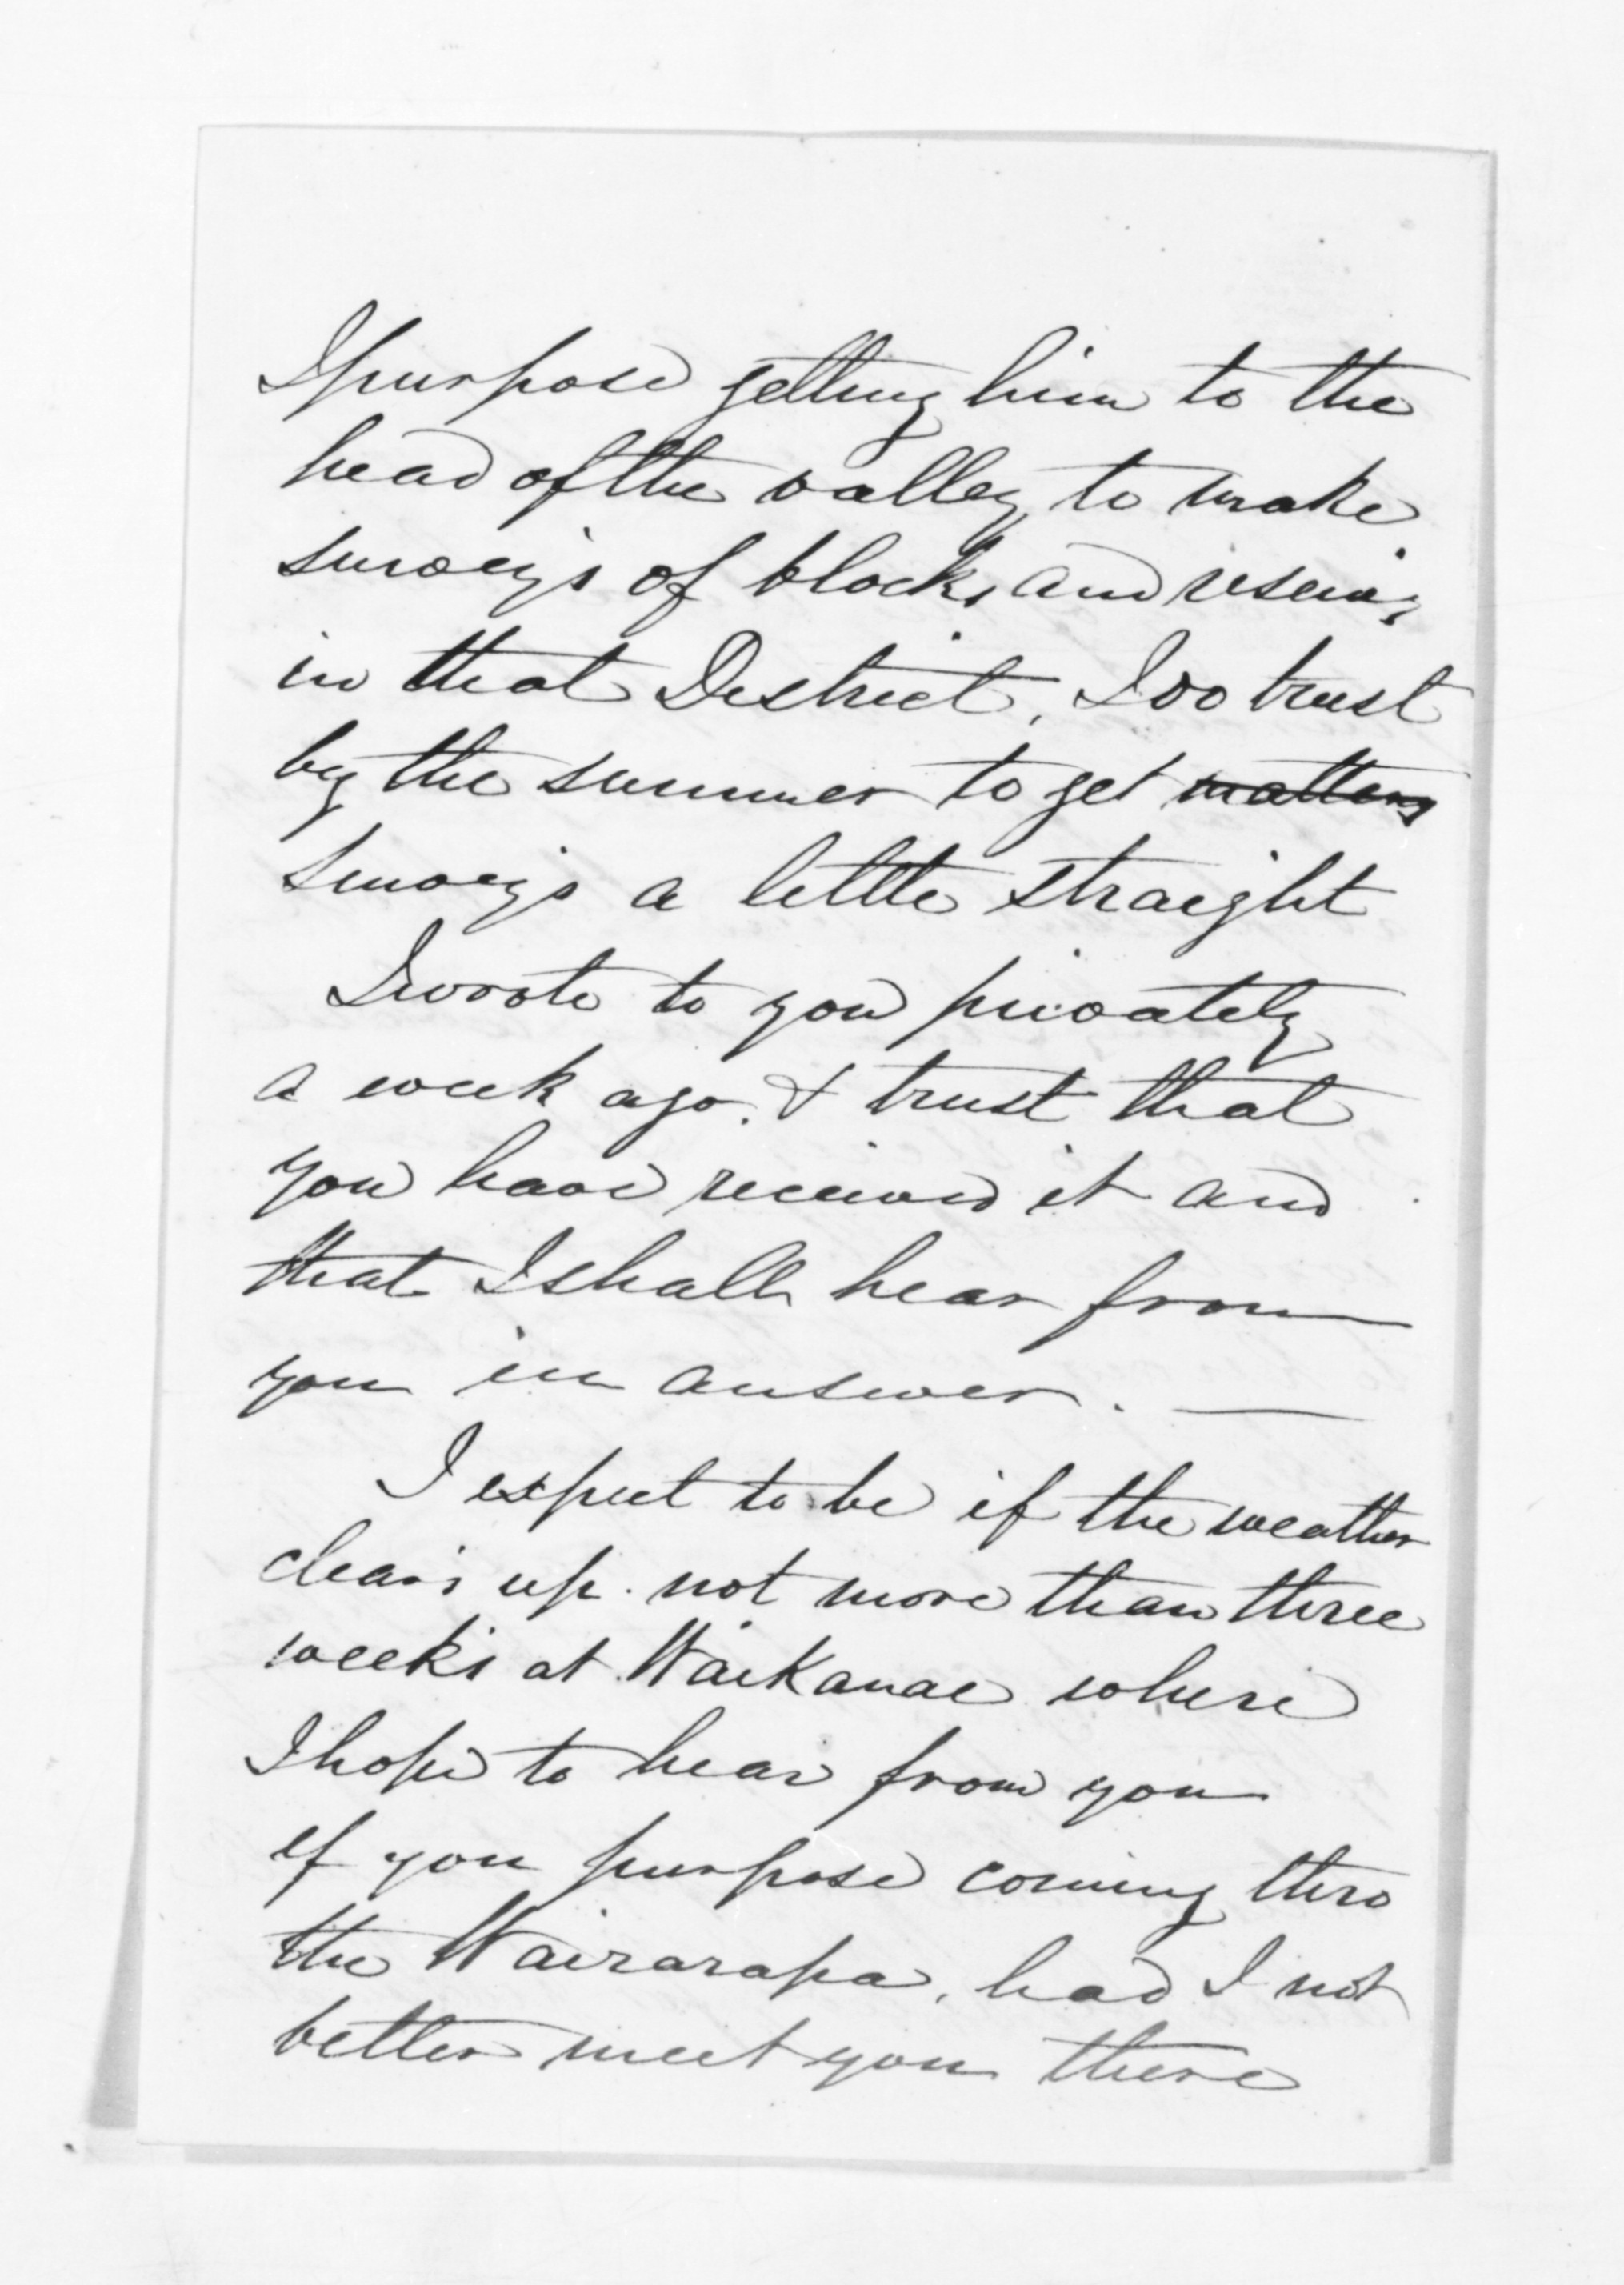 I purpose getting him to the
head of the valley, to make
surveys of blocks and reserves
in that District, I do trust
by the summer to get matters
surveys a little straight
I wrote to you privately
a week ago. & trust that
you have received it and
that I shall hear from
you in answer. —
I expect to be if the weather
clears up. not more than three
weeks at Waikanae where
I hope to hear from you
if you purpose coming thro
the Wairarapa, had I not
better meet you there